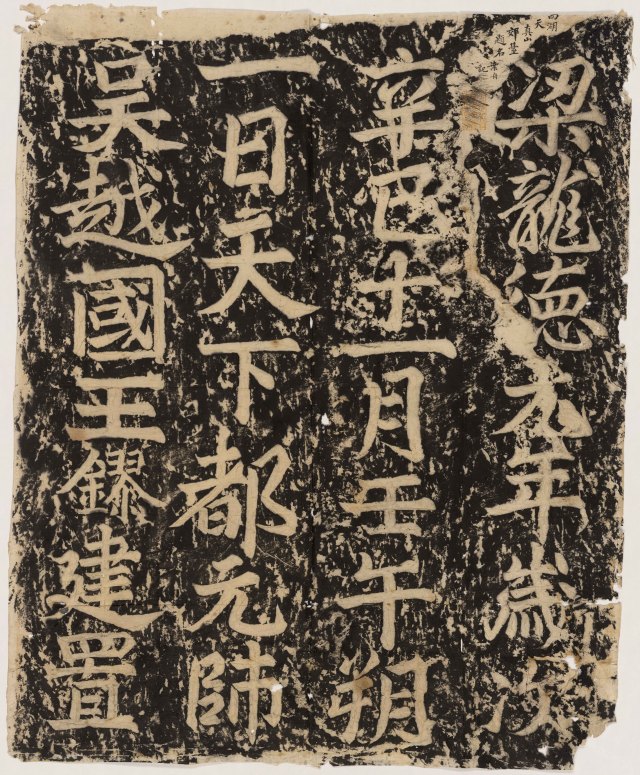 天真山
郊臺
題名
梁龍德元年歲次
辛巳十一月壬午朔
一日天下都元帥
吳越國王鏐建置